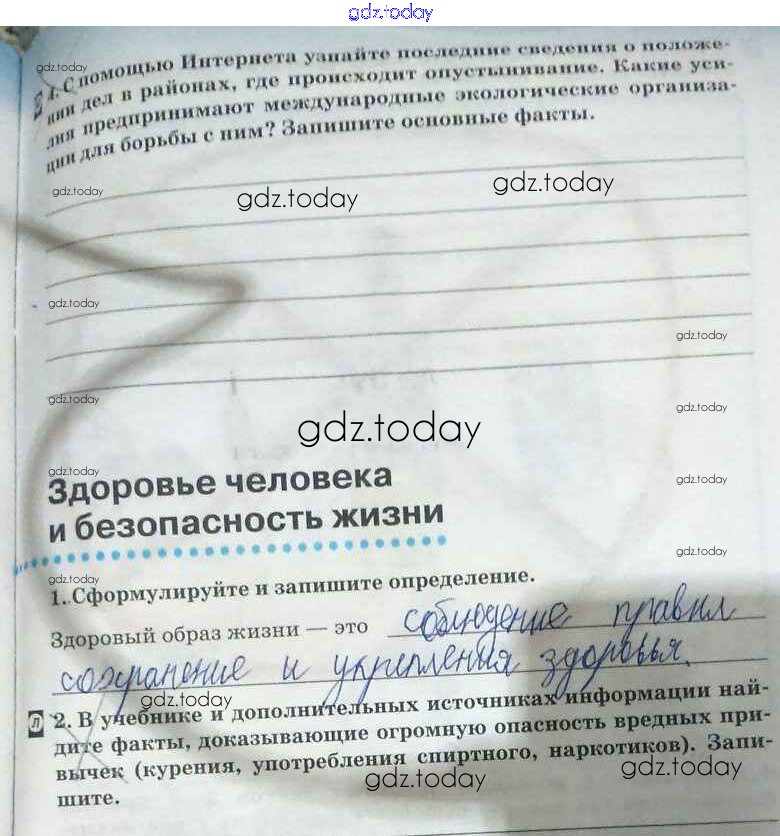 gdz.today
gdz.today
4. С помощью Интернета узнайте последние сведения о положе-
нии дел в районах, где происходит опустынивание. Какие уси-
лия предпринимают международные экологические организа-
ции для борьбы с ним? Запишите основные факты.
gdz.today
gdz.today
gdz.today
gdz.today
gdz.today
gdz.today
gdz.today
gdz.today
gdz.today
gdz.today
Здоровье человека
и безопасность жизни
gdz.today
1. Сформулируйте и запишите определение.
Здоровый образ жизни — это соблюдение правил
сохранение и укрепления здоровья.
gdz.today
Л 2. В учебнике и дополнительных источниках информации най-
дите факты, доказывающие огромную опасность вредных при-
вычек (курения, употребления спиртного, наркотиков). Запи-
шите.
gdz.today
gdz.today